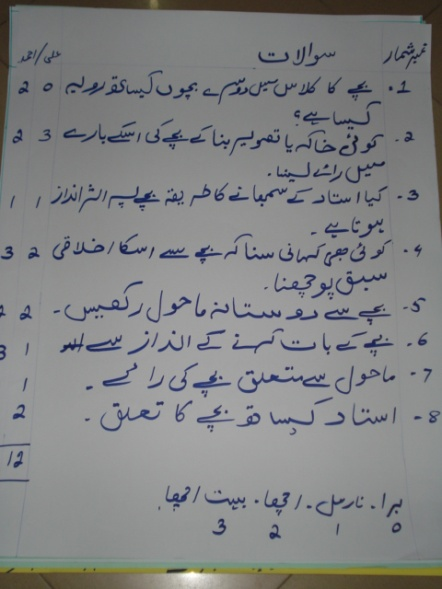 نمبر شمار سوالات علی/احمد
1- بچے کا کلاس میں دوسرے بچوں کیساتھ رویہ 0 2
کیسا ہے؟
2- کوئی خاکہ یا تصویر بنا کے بچے کی اسکے بارے 3 2
میں رائے لینا۔
3- کیا استاد کے سمجھانے کا طریقہ بچے پہ اثر انداز 1 1
ہوتا ہے۔
4- کوئی بھی کہانی سنا کہ بچے سے اسکا اخلاقی 2 3
سبق پوچھنا۔
5- بچے سے دوستانہ ماحول رکھیں۔ 2 2
6- بچے کے بات کہنے کے انداز سے 1 3
7- ماحول سے متعلق بچے کی رائے۔ 1
8- استاد کیساتھ بچے کا تعلق۔ 2
12
برا۔ نارمل۔ اچھا۔ بہت اچھا
0 1 2 3